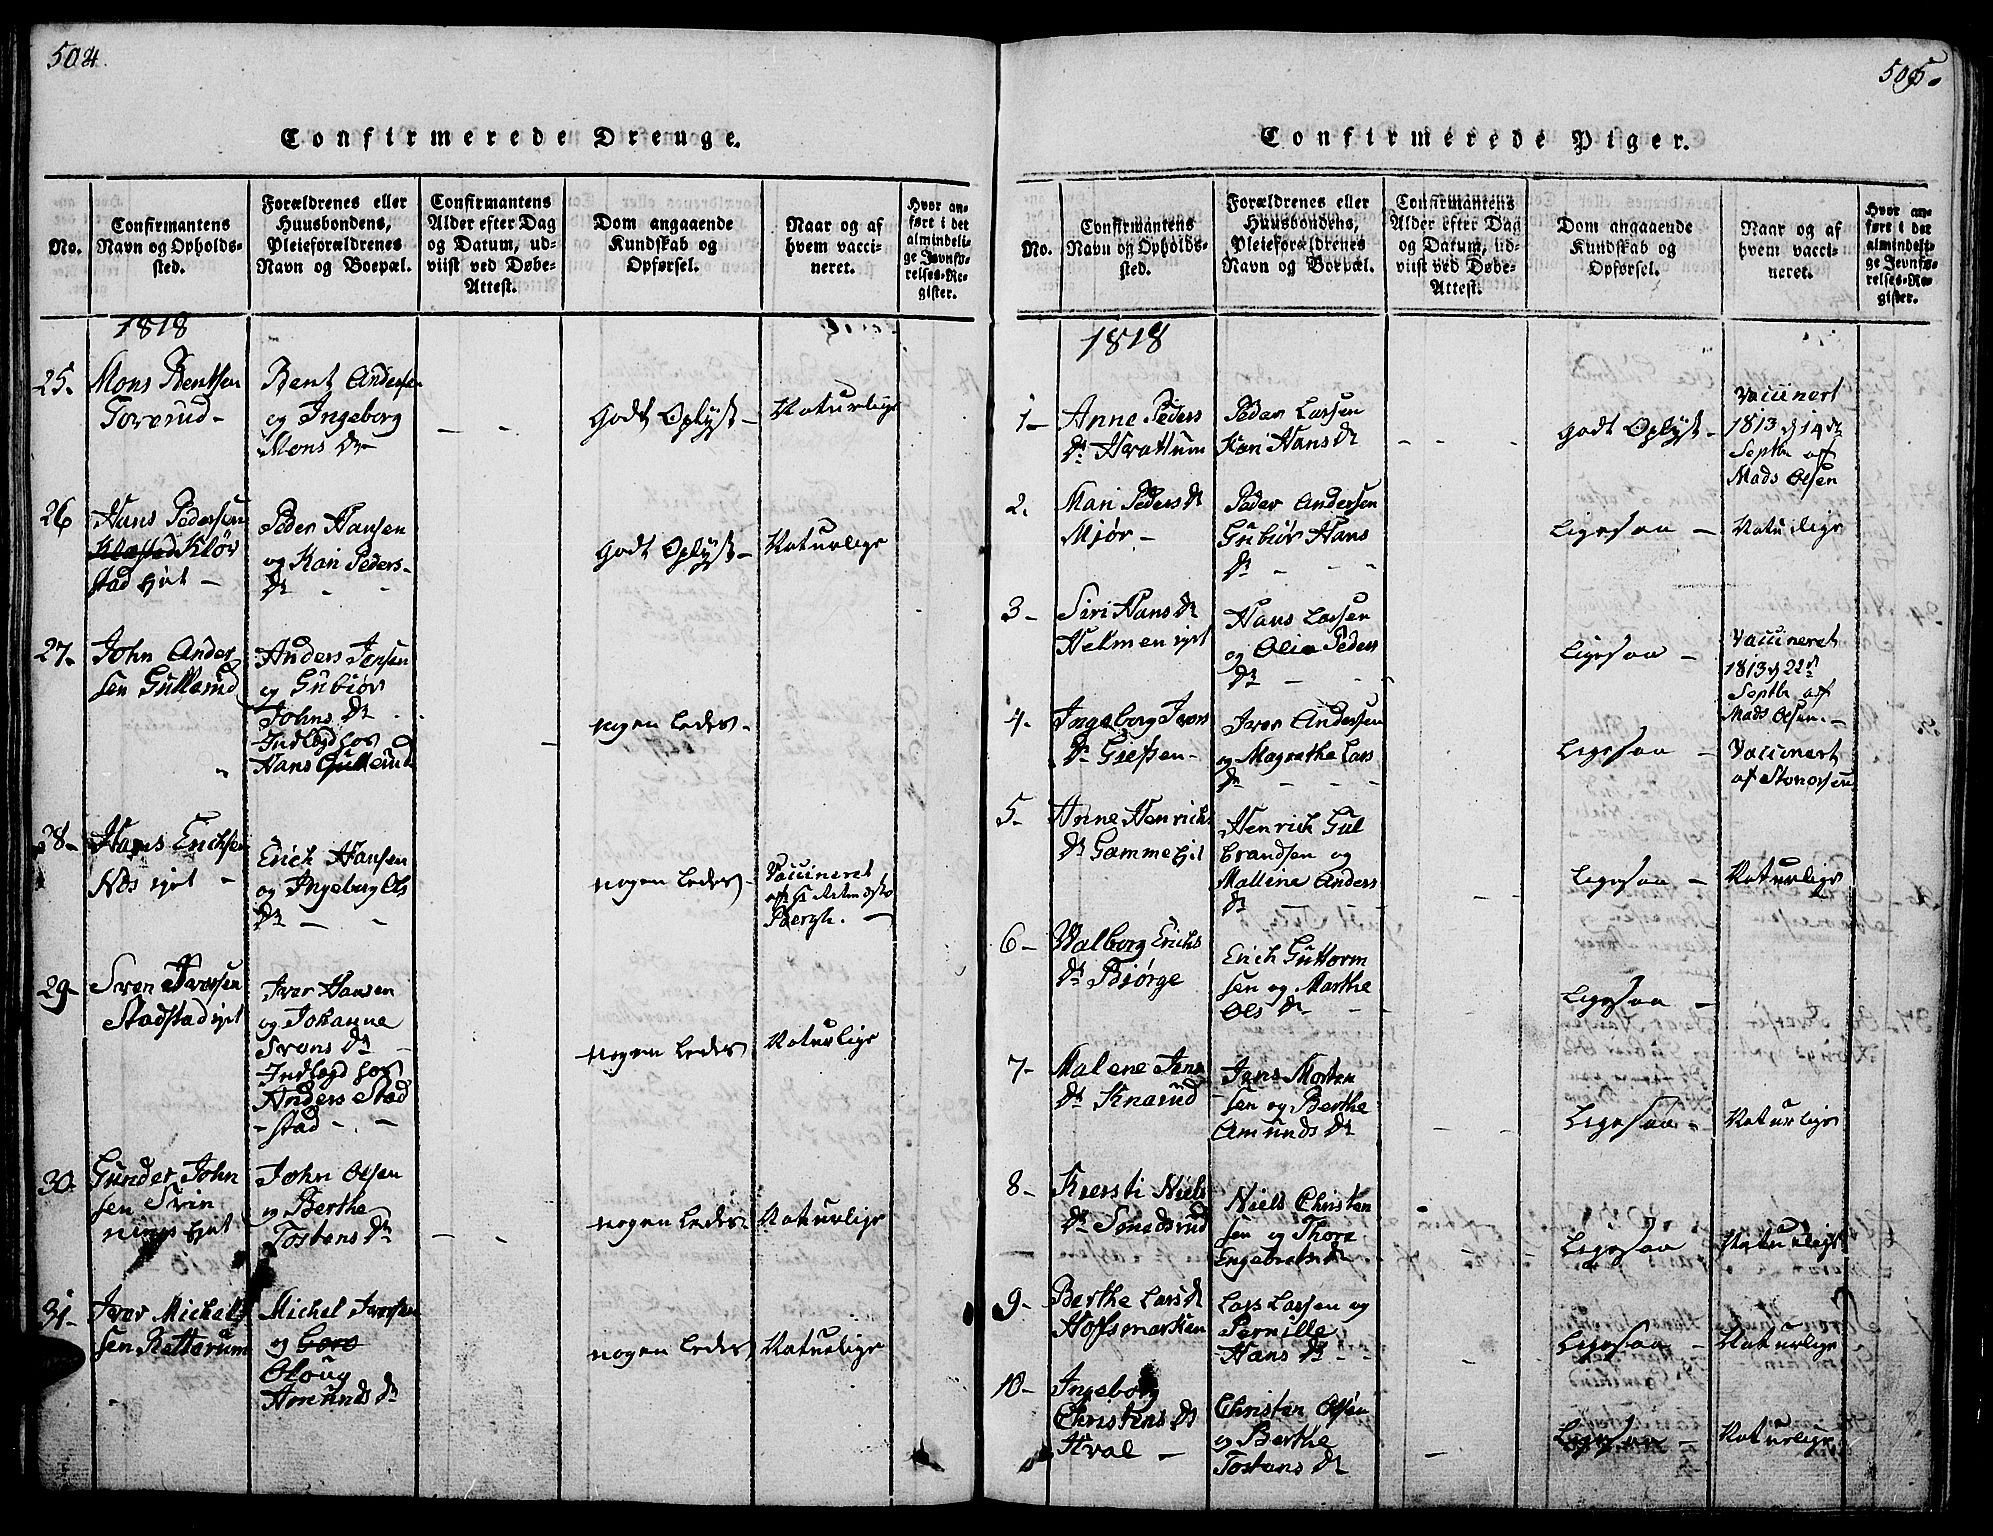 504.
Confirmerede Drenge.
No.
Confirmantens
Navn og Opholds-
sted.
Forældrenes eller
Huusbondens,
Pleieforældrenes
Navn og Boepæl.
Confirmantens
Alder efter Dag
og Datum, ud-
viist ved Døbe-
Attest.
Dom angaaende
Kundskab og
Opførsel.
Naar og af
hvem vacci-
neret.
Hvor an-
ført i det
almindeli-
ge Jevnfø-
relses-Re-
gister.
1818
25.
Mons Bentsen
Toverud-
Bent Andersen
og Ingeborg
Mons Dr
- -
Godt Oplyst-
Naturlige
26
Hans Pedersen
Kløv
stad Ejet -
Peder Hansen
og Kari Peders-
Dr - -
Godt Oplyst-
Naturlige
27.
John Ander
sen Gullerud
Anders Jensen
og Gubiør
Johns Dr -
Indlagd hos
Hans Gullerud
-
nogen Ledes-
28-
Hans Erichsen
Næs Ejet -
Erich Hansen
og Ingeborg Ols
Dr - -
nogen Ledes-
Vaccineret
af
Bergh. -
29-
Sven Iversen
Stadstad Ejet
Iver Hansen
og Johanne
Svens Dr -
Indlagd hos
Anders Stad
-stad - . -
nogen Ledes
Naturlige
30.
Gunder John
sen Svin
nings Ejet
John Olsen
og Berthe
Tostens Dr
- -
nogen Ledes-
Naturlige
31-
Iver Michels
sen Ratterum
Michel Iversen
og Goro
Oloug
Amunds Dr
nogen Ledes
Naturlige
505.
Confirmerede Piger.
No.
Confirmantens
Navn og Opholds-
sted.
Forældrenes eller
Huusbondens,
Pleieforældrenes
Navn og Boepæl.
Confirmantens
Alder efter Dag
og Datum, ud-
viist ved Døbe-
Attest.
Dom angaaende
Kundskab og
Opførsel.
Naar og af
hvem vacci-
neret.
Hvor an-
ført i det
almindeli-
ge Jevnfø-
relses-Re-
gister.
1818
1-
Anne Peders
Dr Hvattum
Peder Larsen
Kari Hans Dr
- -
Godt Oplyst-
Vaccinert
1813 d 14 de
Septbr af
Mads Olsen
2.
Mari Peders Dr
Mjør -
Peder Andersen
Gubiør Hans
Dr - - -
Ligesaa -
Naturlige
3-
Siri Hans Dr
Helmen Ejet
Hans Larsen
og Olia Peders
Dr - -
Ligesaa -
Vaccineret
1813 d 22 d
Septbr af
Mads Olsen. -
4-
Ingeborg Ivers
Dr Grefsen-
Iver Andersen
og Magrethe Lars
Dr - - -
Ligesaa -
Vaccinert
af Stenersen
5-
Anne Henrichs
Dr Gamme Ejet
Henrich Gul
brandsen og
Malline Anders
Dr - -
- -
Ligesaa -
Naturlige
6-
Valborg Erichs
Dr Bjørge
Erich Guttorm
sen og Marthe
Ols Dr - -
Ligesaa -
7-
Malene Jens
Dr Knarud
Jens Morten
sen og Berthe
Amunds Dr
- -
Ligesaa -
Naturlige
8-
Kiersti Niels
Dr Smedsrud
Niels Christen
sen og Thore
Engebrets Dr
Ligesaa -
Naturlige
9-
Berthe Lars Dr
Hoffsmarken
Lars Larsen og
Pernille
Hans Dr - -
- -
Ligesaa -
Naturlige
10-
Ingeborg
Christens Dr
Hval -
Christen Olsen
og Berthe
Tostens Dr
-
Ligesaa -
Naturlige